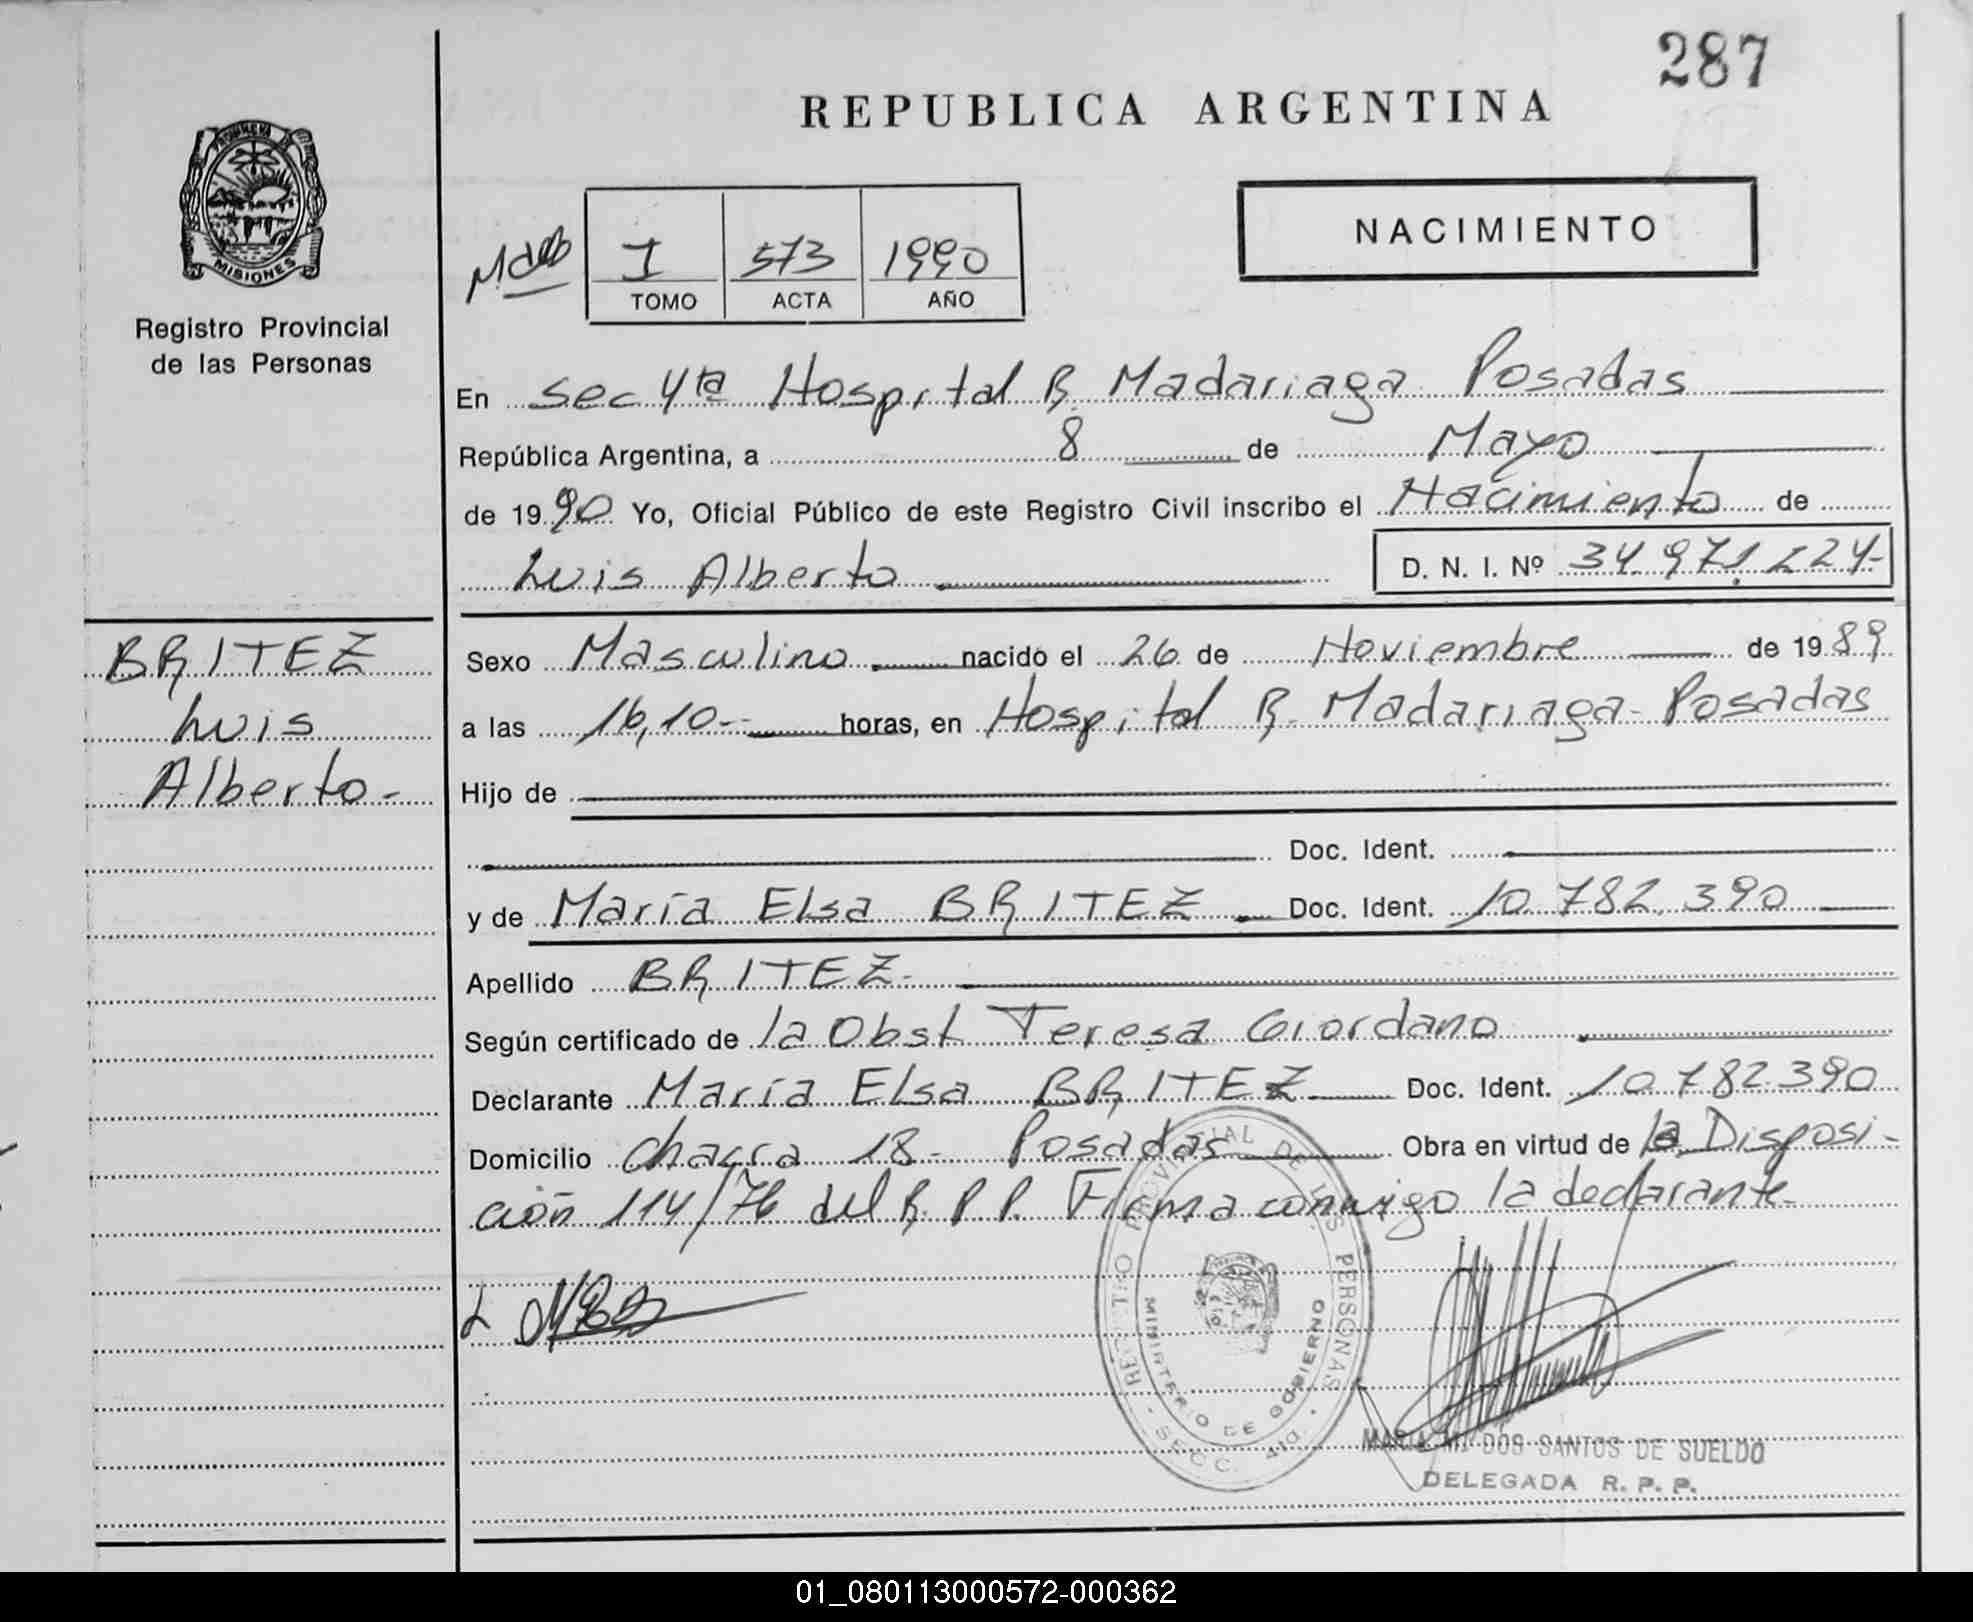 287
REPUBLICA ARGENTINA
MISIONES
Registro Provincial
de las Personas
I 573 1990
TOMO ACTA AÑO
NACIMIENTO
En Sec 4ta Hospital R. Madariaga Posadas
República Argentina, a 8 de Mayo
de 1990 Yo, Oficial Público de este Registro Civil inscribo el Nacimiento de
Luis Alberto D. N. I. Nº 34.971.224-
BRITEZ
Luis
Alberto-
Sexo Masculino nacido el 26 de Noviembre de 1989
a las 16,10-- horas, en Hospital R. Madariaga- Posadas
Hijo de
Doc. Ident.
y de María Elsa BRITEZ Doc. Ident. 10.782.390
Apellido BRITEZ-
Según certificado de la Obst Teresa Giordano
Declarante María Elsa BRITEZ Doc. Ident. 10.782.390
Domicilio chacra 18- Posadas Obra en virtud de la Disposi-
ción 114/76 del R. P. P. Firma conmigo la declarante-
REGISTRO PROVINCIAL DE LAS PERSONAS
MINISTERIO DE GOBIERNO
SECC. 4ta.
MARIA M. DOS SANTOS DE SUELDO
DELEGADA R. P. P.
01_080113000572-000362